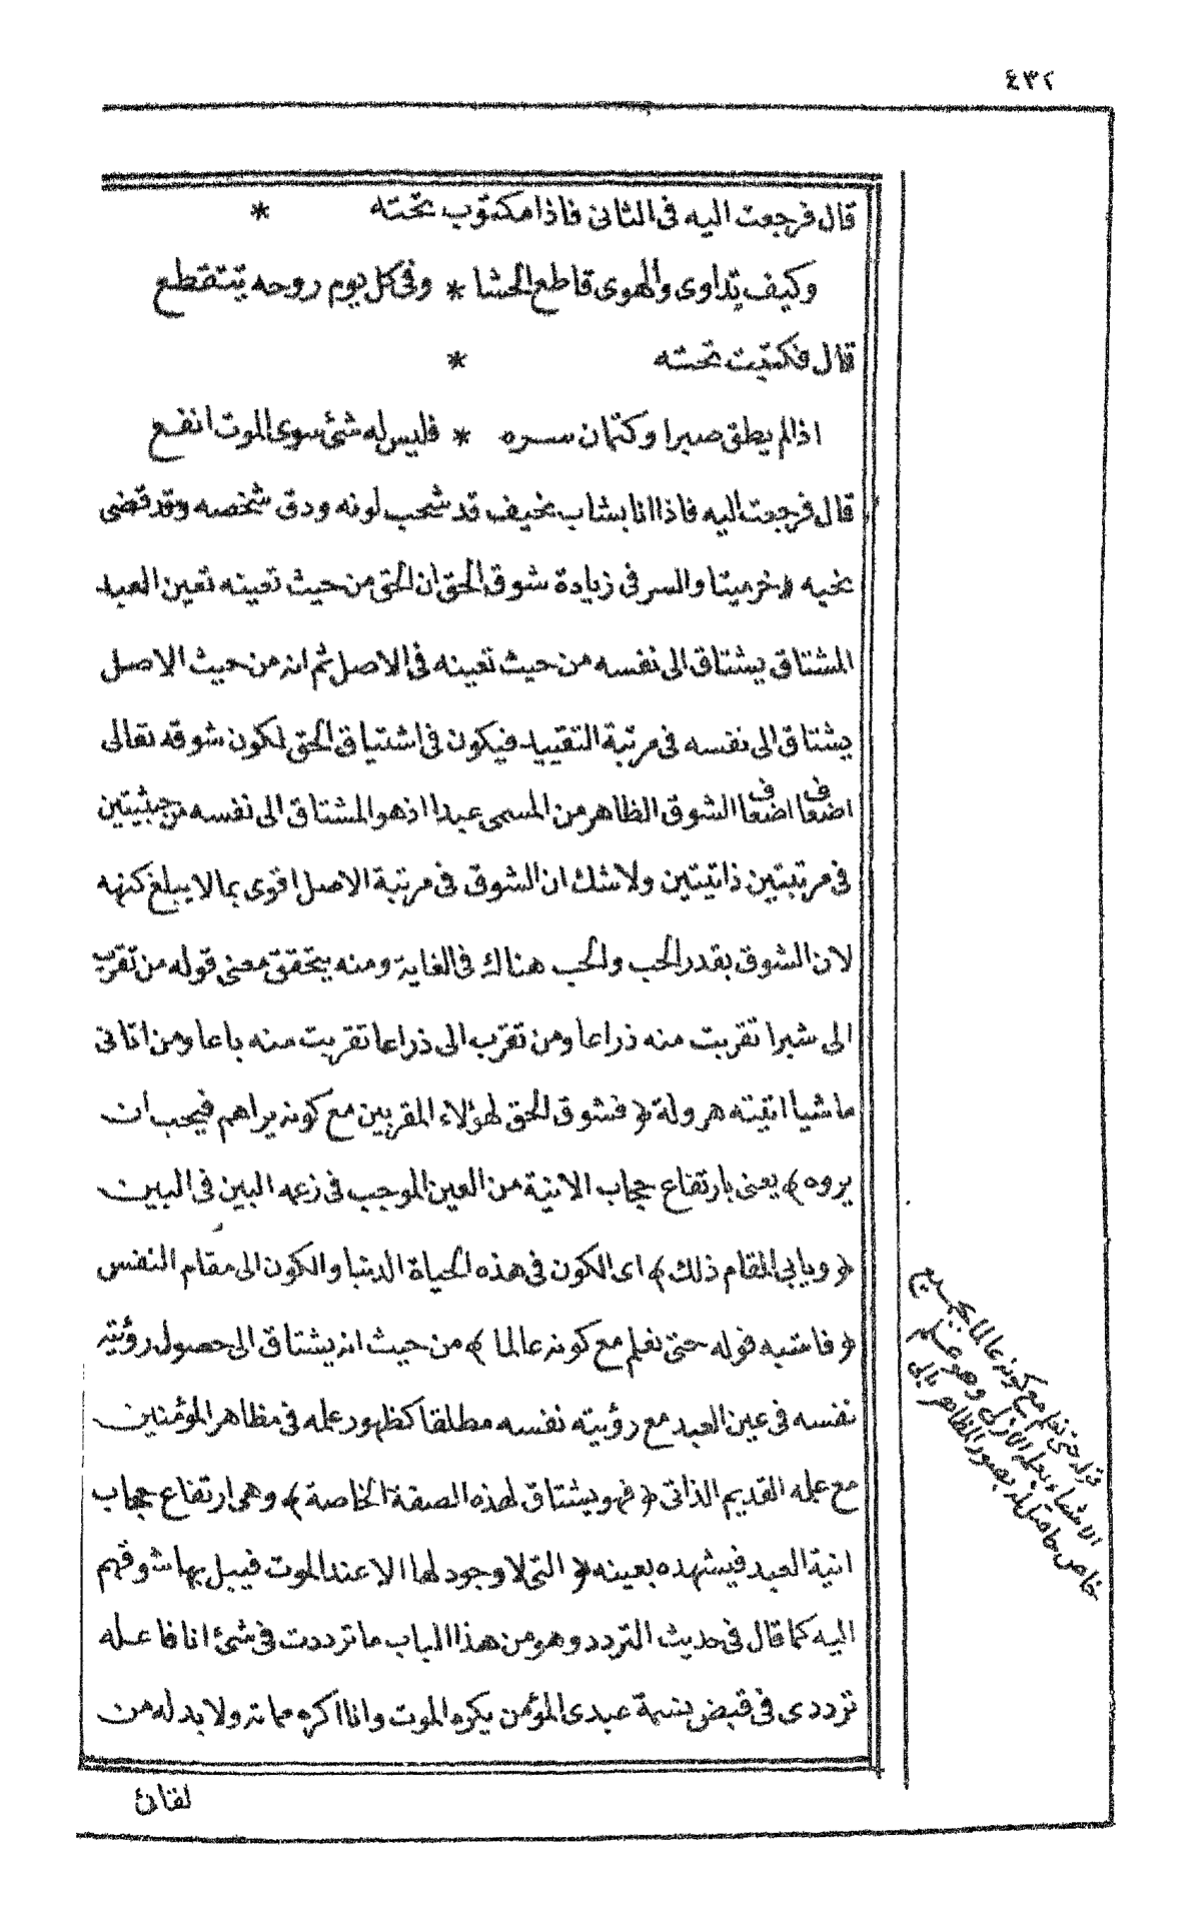 ٤٣٢
قال فرجعت اليه فى الثانى فاذا مكتوب تحته *
وكيف يداوى والهوى قاطع الحشا * وفى كل يوم روحه يتقطع
قال فكتبت تحته *
اذا لم يطق صبرا وكتمان سره * فليس له شئ سوى الموت انفع
قال فرجعت اليه فاذا انا بشاب نحيف قد شحب لونه ودق شخصه وقد قضى
نحبه ﴿ خر ميتا والسر فى زيادة شوق الحق ان الحق من حيث تعينه تعين العبد
المشتاق يشتاق الى نفسه من حيث تعينه فى الاصل ثم انه من حيث الاصل
يشتاق الى نفسه فى مرتبة التقييد فيكون فى اشتياق الحق لكون شوقه تعالى
اضعاف اضعاف الشوق الظاهر من المسمى عبدا اذ هو المشتاق الى نفسه من حيثيتين
فى مرتبتين ذاتيتين ولا شك ان الشوق فى مرتبة الاصل اقوى بما لا يبلغ كنهه
لان الشوق بقدر الحب والحب هناك فى الغاية ومنه يتحقق معنى قوله من تقرب
الى شبرا تقربت منه ذراعا ومن تقرب الى ذراعا تقربت منه باعا ومن اتانى
ماشيا اتيته هرولة ﴿ فشوق الحق لهؤلاء المقربين مع كونه يراهم فيحب ان
يروه ﴾ يعنى بارتفاع حجاب الانية من العين الموجب فى زعمه البين فى البين
﴿ ويابى المقام ذلك ﴾ اى الكون فى هذه الحياة الدنيا والكون الى مقام النفس
﴿ فاشبه قوله حتى نعلم مع كونه عالما ﴾ من حيث انه يشتاق الى حصول رؤيته
نفسه فى عين العبد مع رؤيته نفسه مطلقا كظهور علمه فى مظاهر المؤمنين
مع علمه القديم الذاتى ﴿ فهو يشتاق لهذه الصفة الخاصة ﴾ وهى ارتفاع حجاب
انية العبد فيشهده بعينه ﴿ التى لا وجود لها الا عند الموت فيبل بها شوقهم
اليه كما قال فى حديث التردد وهو من هذا الباب ما ترددت فى شئ انا فاعله
ترددى فى قبض نسمة عبدى المؤمن يكره الموت وانا اكره مماته ولا بد له من
لقائ
قوله حتى نعلم مع كونه عالما بجميع
الاشياء بعلمه الازلى وهو علم
خاص حاصل له بصور المظاهر بالى